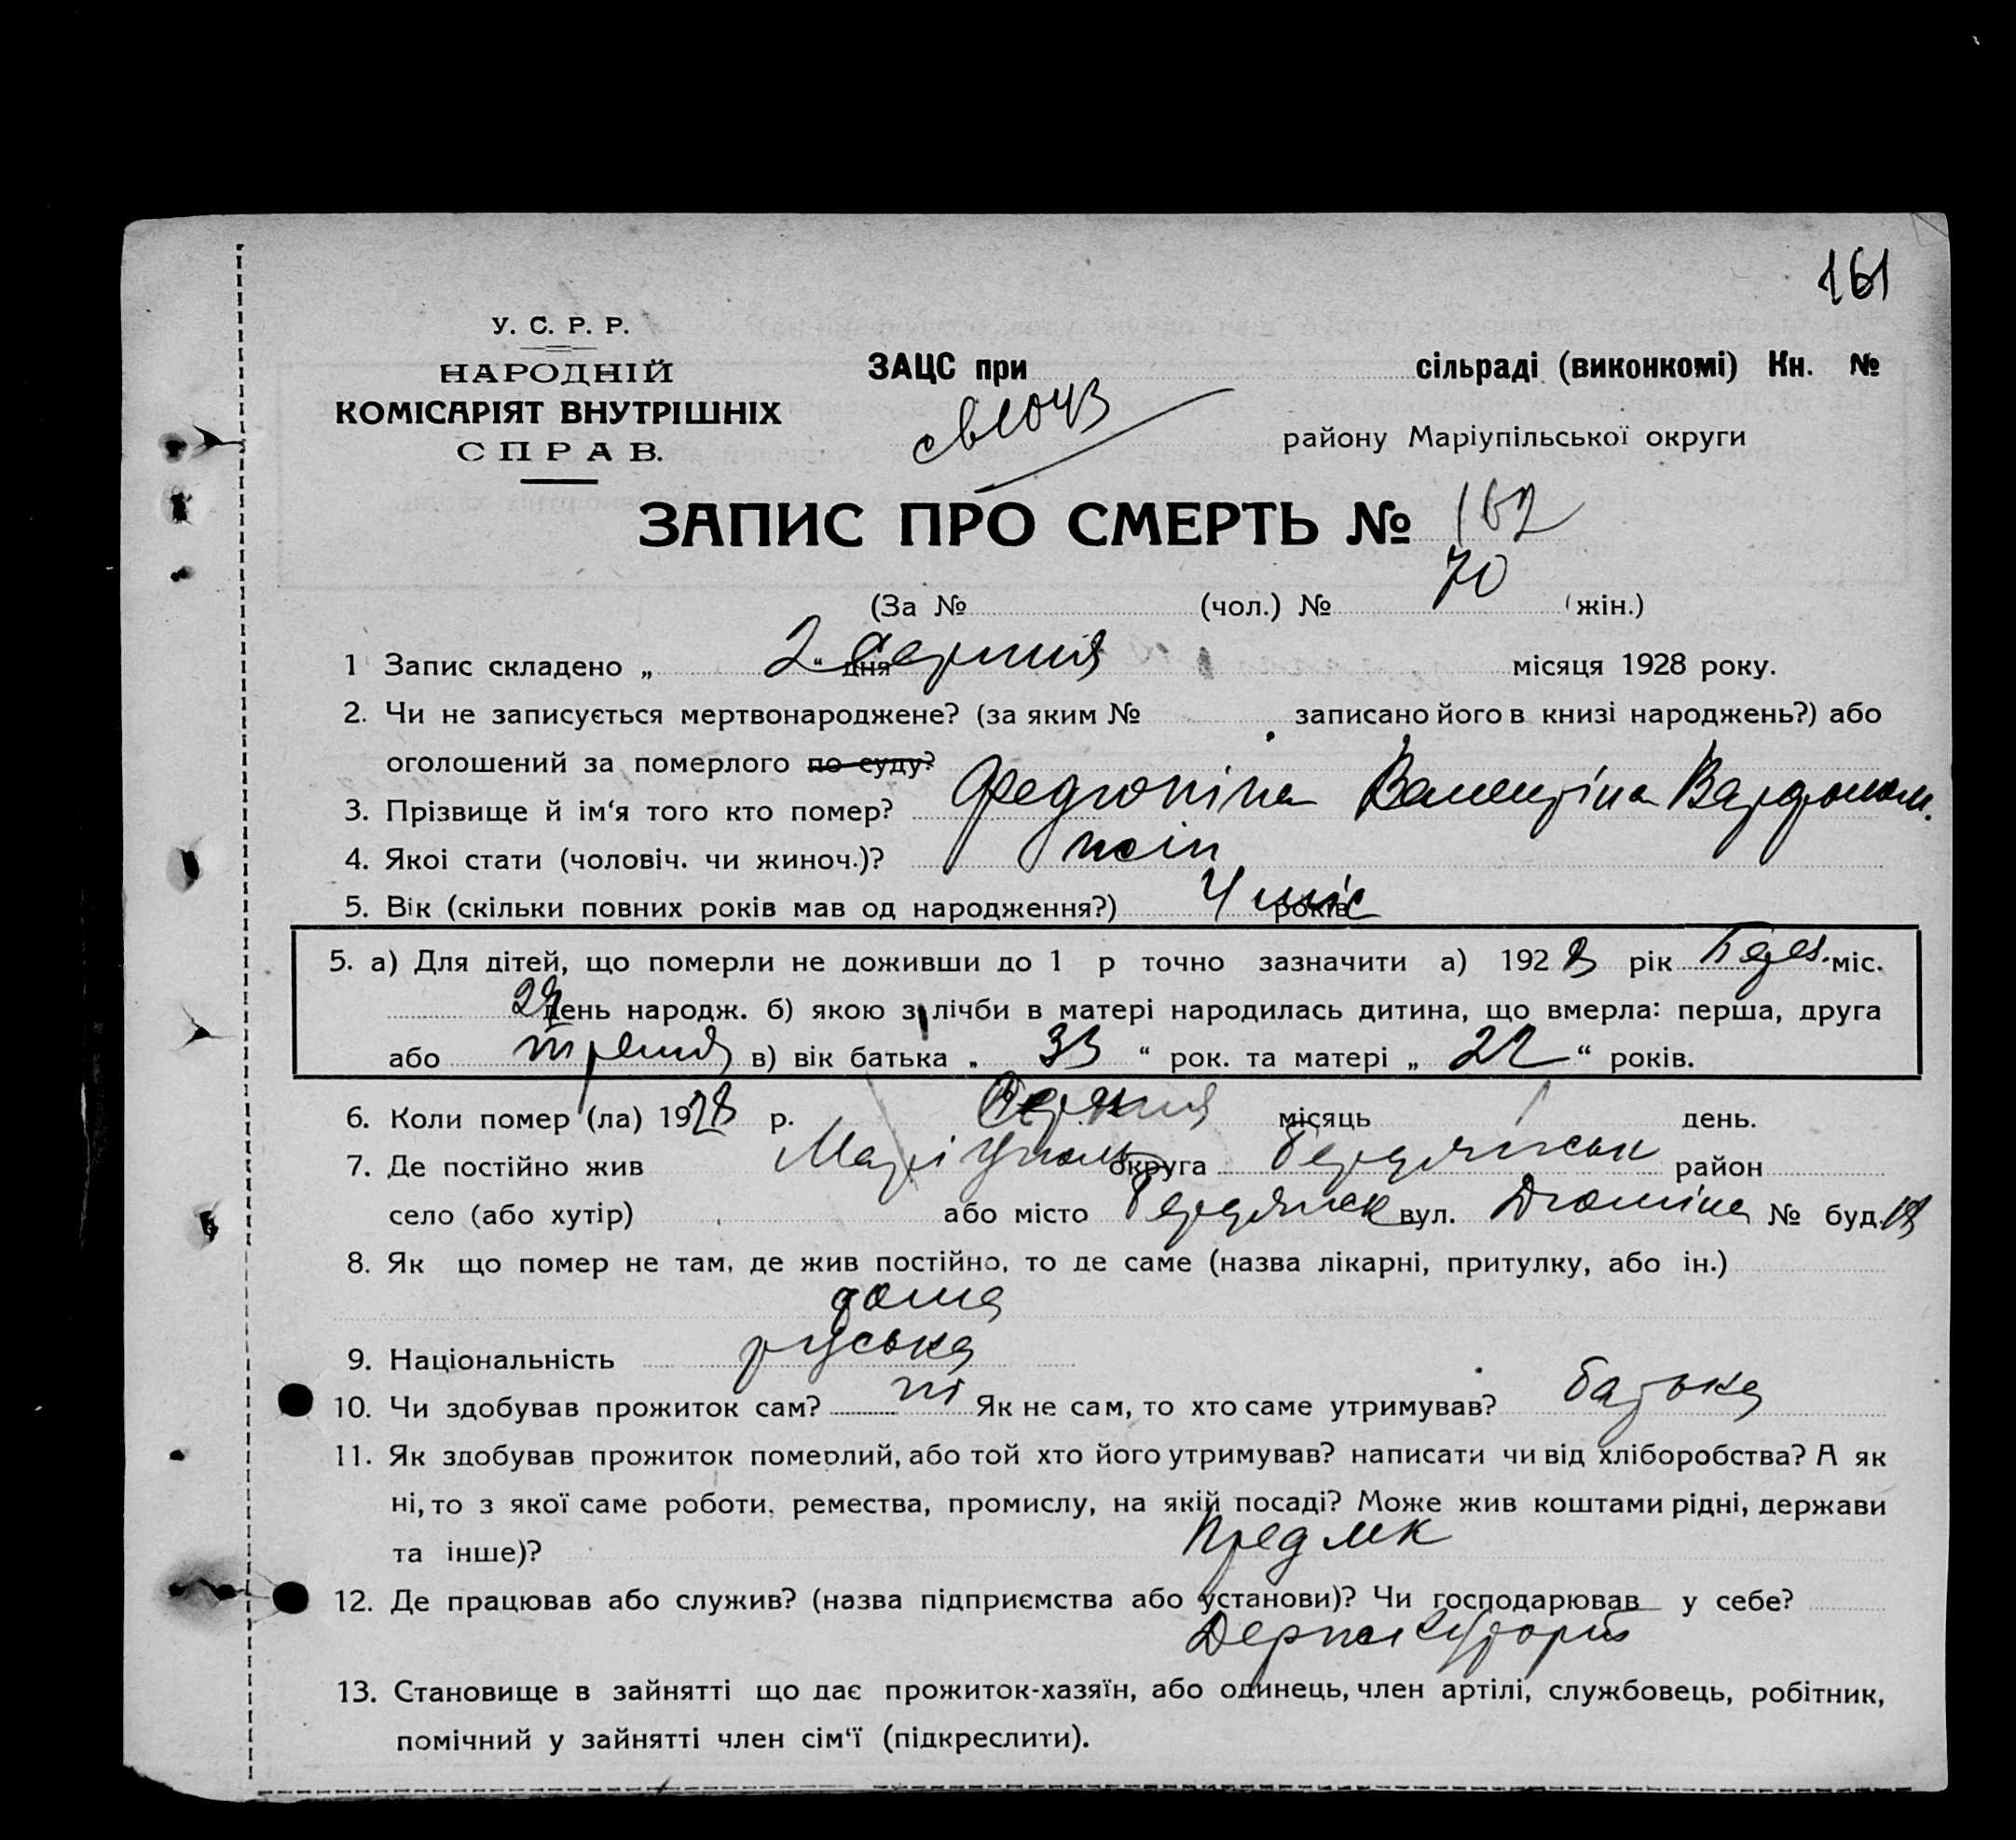 161
У. С. Р. Р.
НАРОДНІЙ
КОМІСАРІЯТ ВНУТРІШНІХ
СПРАВ.
ЗАЦС при сільраді (виконкомі) Кн. №
району Маріупільської округи
ЗАПИС ПРО СМЕРТЬ № 162
(За № (чол.) № 70 (жін.)
1 Запис складено „ 2 “ дня серпня місяця 1928 року.
2. Чи не записується мертвонароджене? (за яким № записано його в книзі народжень?) або
оголошений за померлого по суду?
3. Прізвище й ім'я того хто помер? Валентіна
4. Якоі стати (чоловіч. чи жиноч.)? жін
5. Вік (скільки повних років мав од народження?) 4 міс років
5. а) Для дітей, що померли не доживши до 1 р точно зазначити а) 1928 рік міс.
день народж. б) якою з лічби в матері народилась дитина, що вмерла: перша, друга
або третя в) вік батька „ 33 “ рок. та матері „ 22 “ років.
6. Коли помер (ла) 1928 р. Серпня місяць 1 день.
7. Де постійно жив Маріуполь округа Бердянськ район
село (або хутір) або місто Бердянск вул. Дюміна № буд.
8. Як що помер не там, де жив постійно, то де саме (назва лікарні, притулку, або ін.)
дома
9. Національність руська
10. Чи здобував прожиток сам? ні Як не сам, то хто саме утримував? батька
11. Як здобував прожиток померлий, або той хто його утримував? написати чи від хліборобства? А як
ні, то з якої саме роботи, ремества, промислу, на якій посаді? Може жив коштами рідні, держави
та інше)? Пред МК
12. Де працював або служив? (назва підприємства або установи)? Чи господарював у себе?
13. Становище в зайнятті що дає прожиток-хазяїн, або одинець, член артілі, службовець, робітник,
помічний у зайнятті член сім'ї (підкреслити).